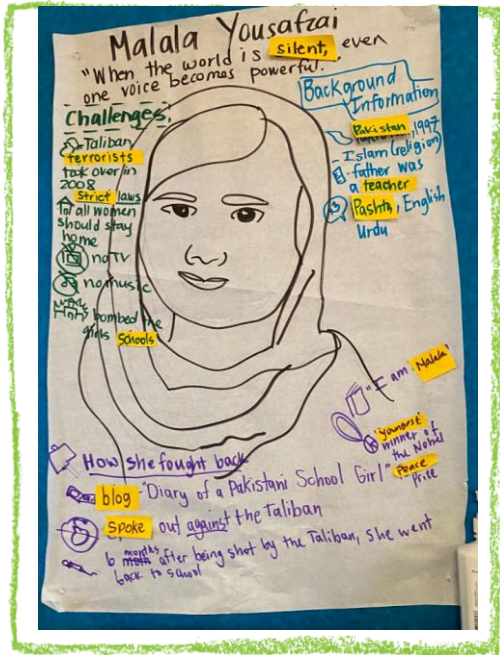 Malala Yousafzai
"When the world is silent, even
one voice becomes powerful."
Challenges:
Taliban
terrorists
took over in
2008
Strict laws
all women
should stay
home
no TV
no music
bombed the
girls Schools
Background
Information
Pakistan, 1997
- Islam (religion)
- father was
a teacher
Pashto, English
Urdu
"I am Malala"
"youngest"
winner of
the Nobel
Peace
Prize
How she fought back
blog "Diary of a Pakistani School Girl"
Spoke out against the Taliban
6 months after being shot by the Taliban, she went
back to school